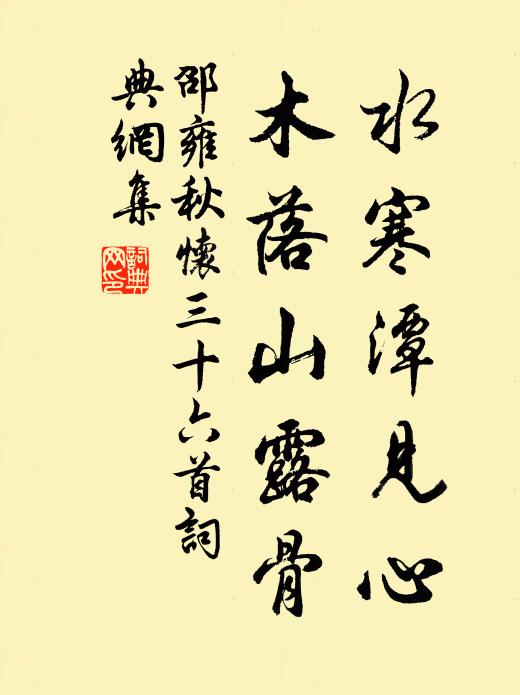 水寒潭見心
木落山露骨
邵雍秋懷三十六首詞
典網集
詞典
网印